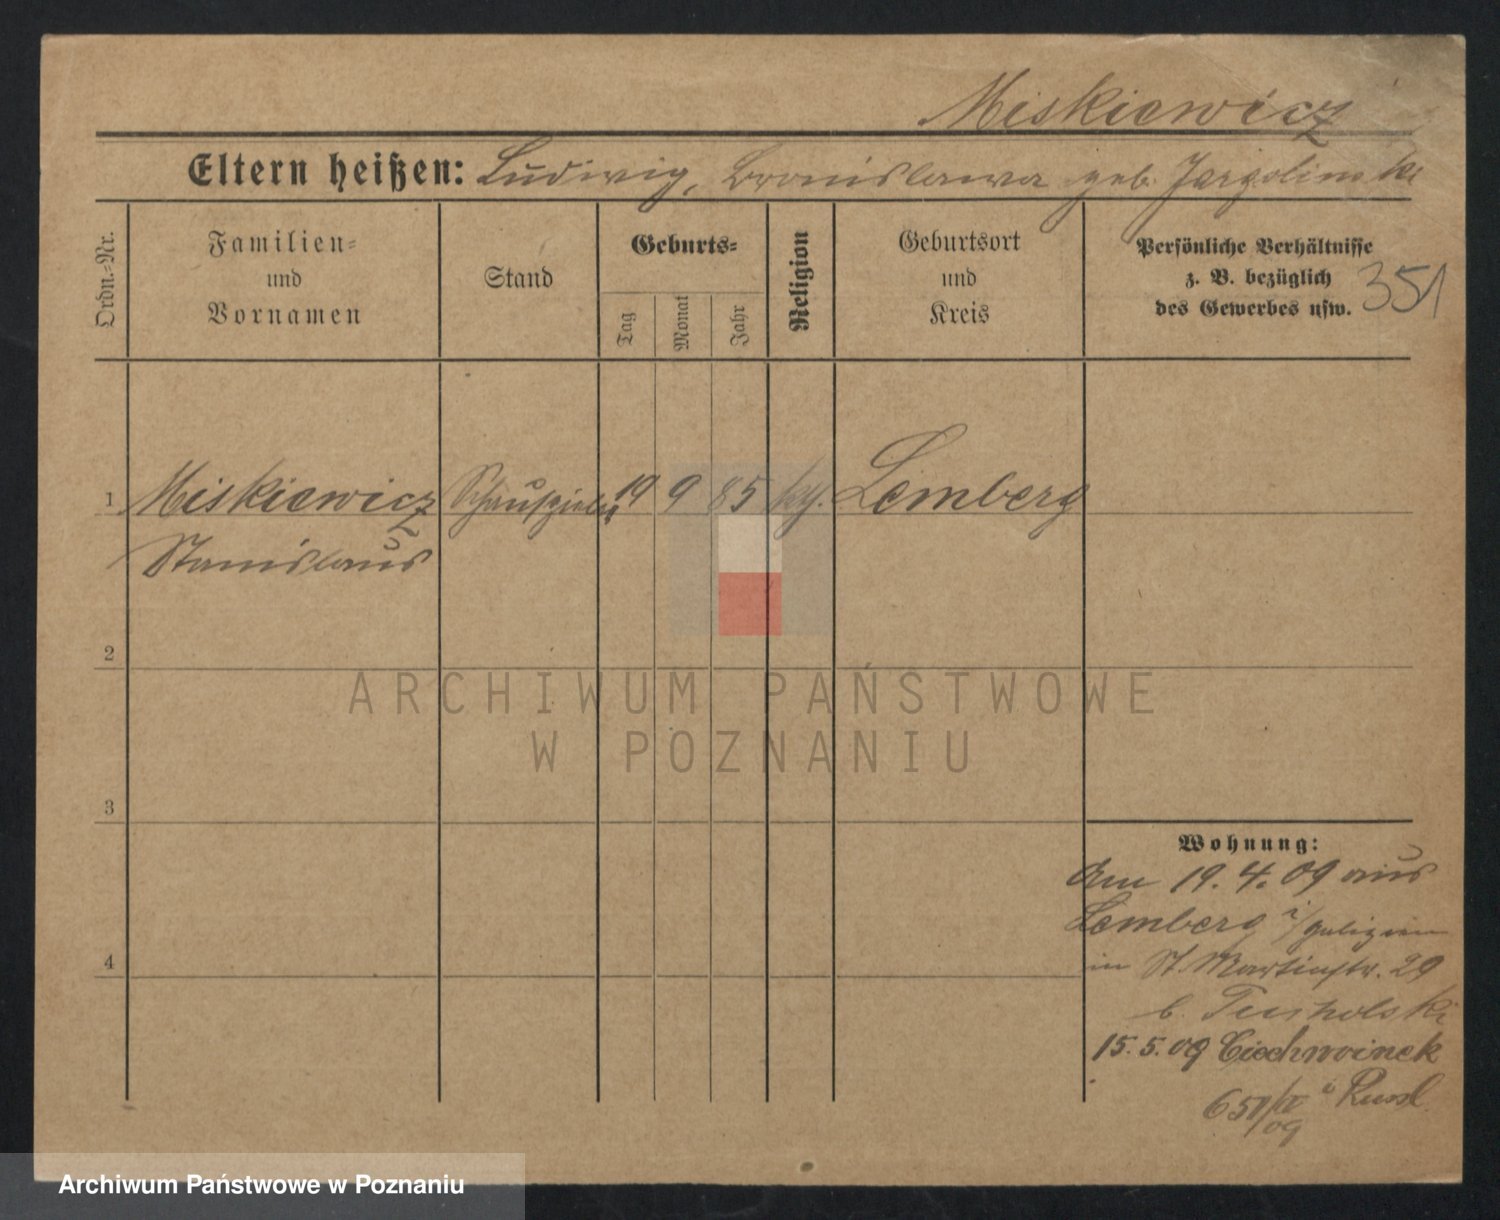 Miskiewicz
Eltern heißen: Ludwig, Bronislawa geb. Jargolinski
Ordn.-Nr.
Familien-
und
Vornamen
Stand
Geburts-
Tag
Monat
Jahr
Religion
Geburtsort
und
Kreis
Persönliche Verhältnisse
z. B. bezüglich
des Gewerbes usw.
351
1 Miskiewicz Schauspieler 19 9 85 kth. Lemberg
Stanislaus
2
3
4
Wohnung:
Am 19. 4. 09 aus
Lemberg i/Galizien
in St. Martinstr. 29
b. Tucholski
15. 5. 09 Ciechocinek
i Russl.
ARCHIWUM PAŃSTWOWE
W POZNANIU
Archiwum Państwowe w Poznaniu